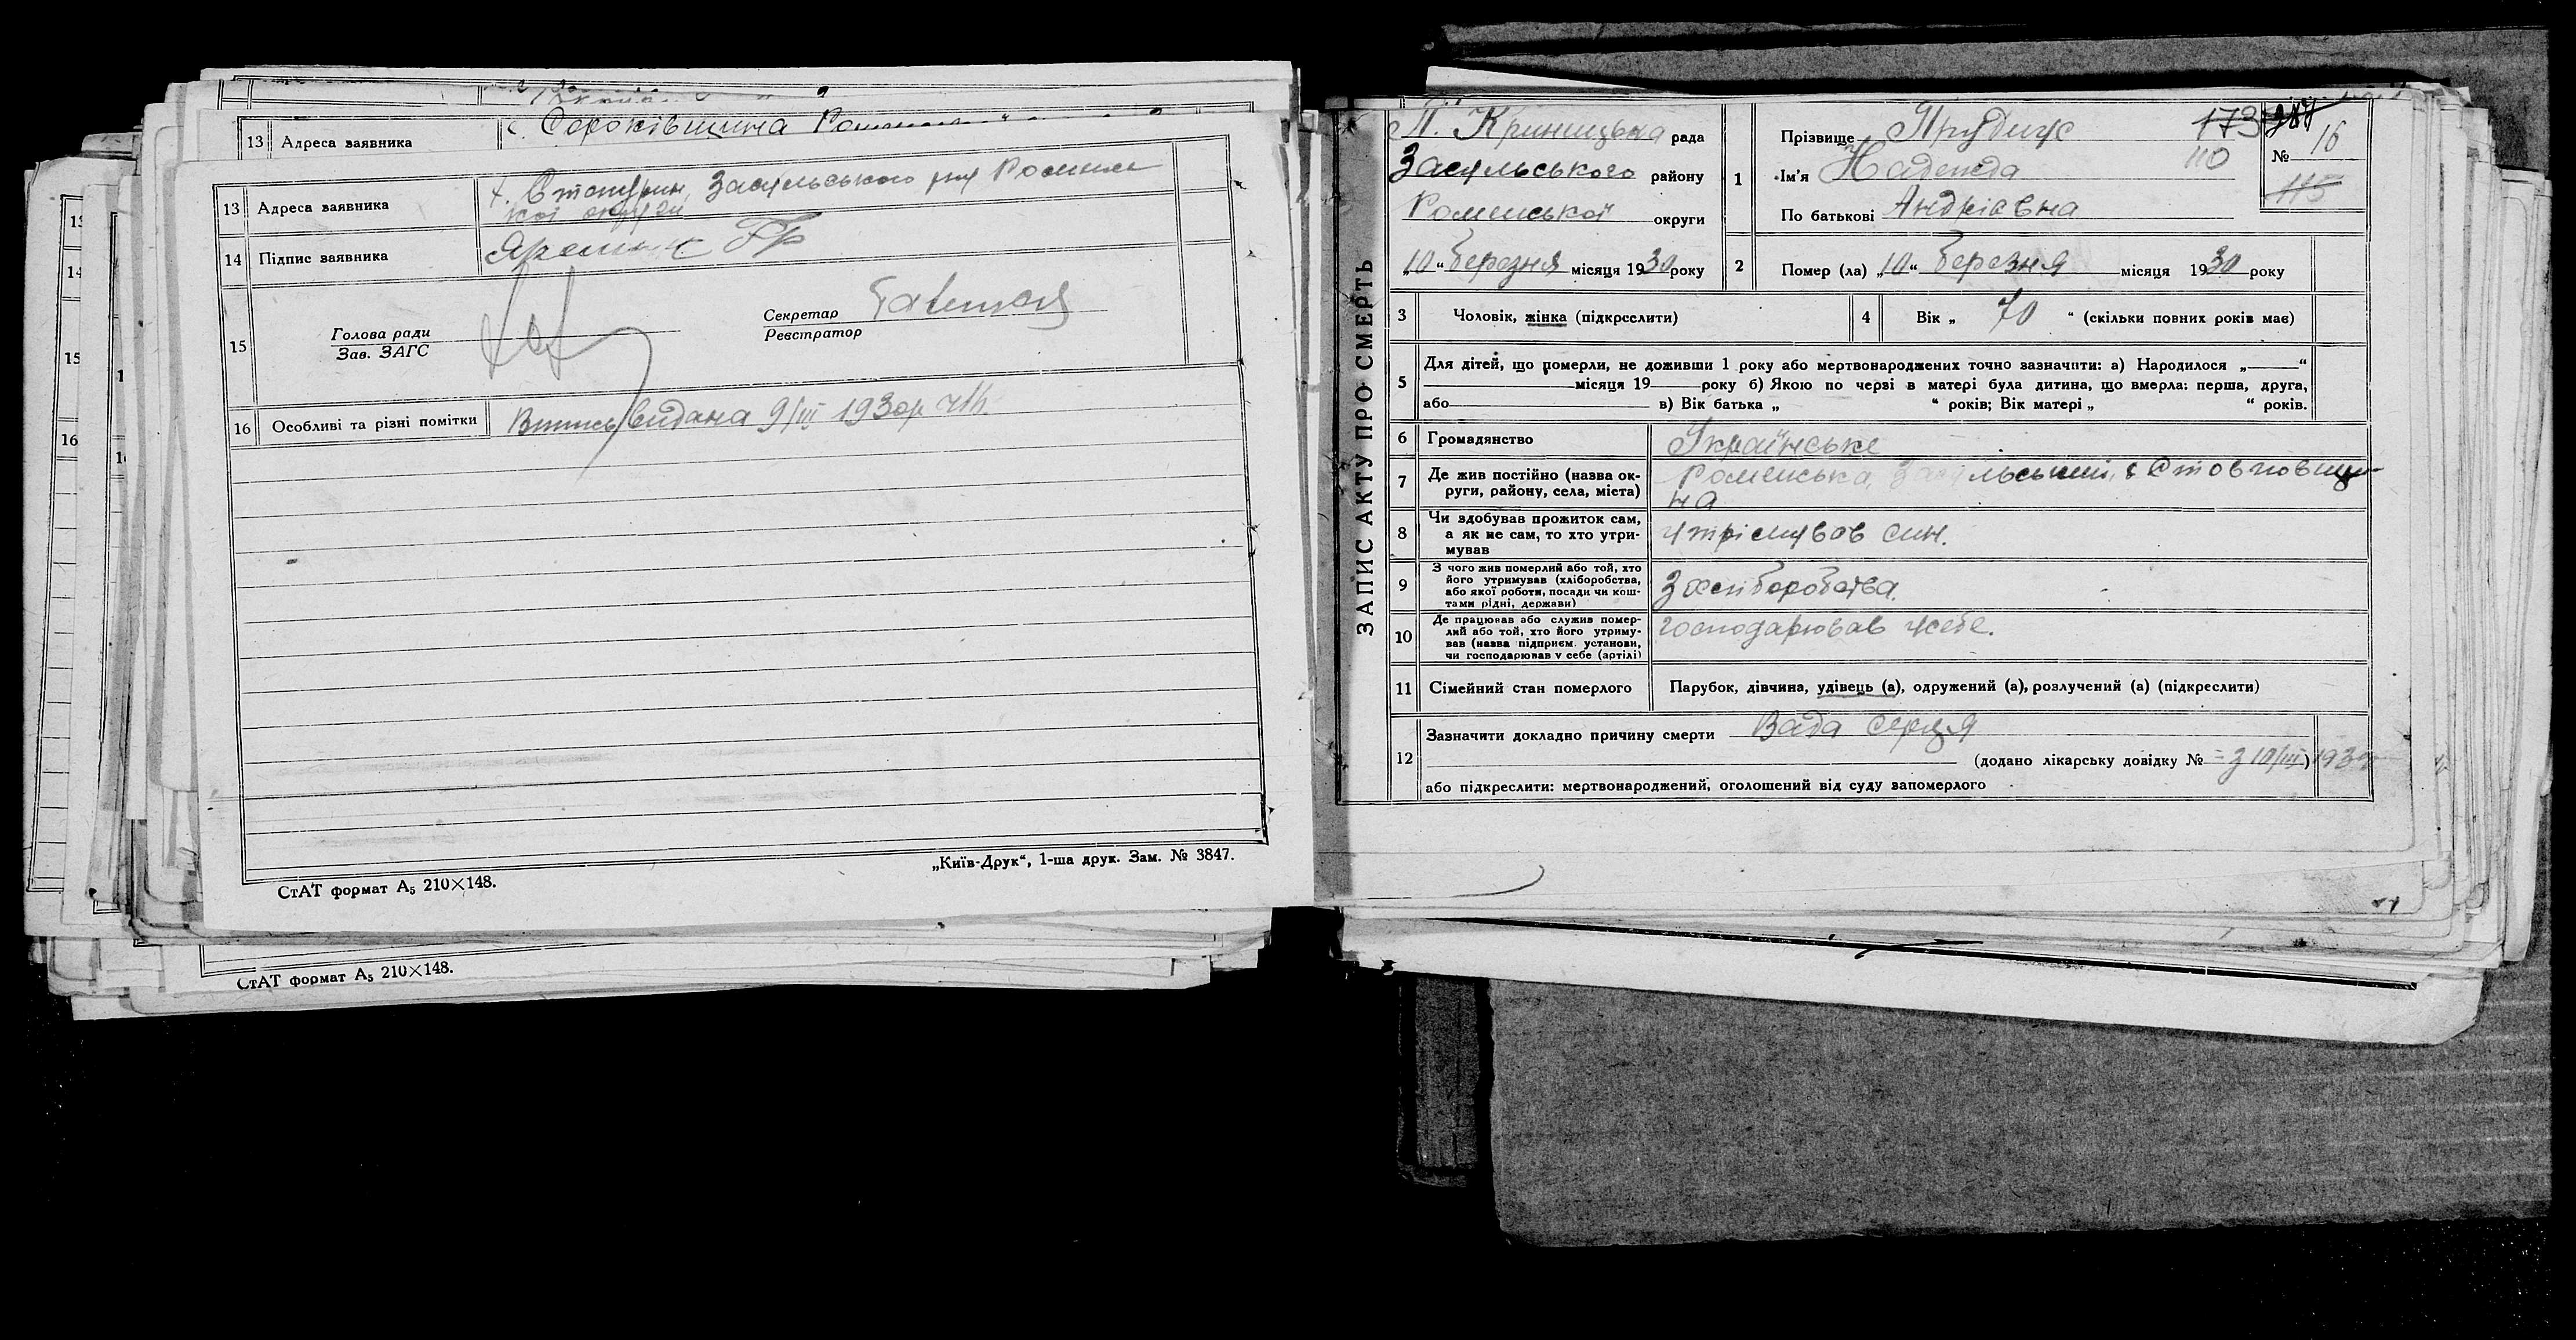 13 Адреса заявника с. Сероківщина
13 Адреса заявника Засульського р-ну Роменсь
кої округи
14 Підпис заявника
15 Голова ради
Зав. ЗАГС
Секретар
Реєстратор
16 Особливі та різні помітки Витись видана 9/III 1930р
„Київ-Друк“, 1-ша друк. Зам. № 3847.
СтАТ формат А5 210×148.
СтАТ формат А5 210×148.
ЗАПИС АКТУ ПРО СМЕРТЬ
П. Криницька рада
Засульського району
Роменської округи
„10“ березня місяця 1930 року
1 Прізвище Прудиус
Ім'я Надежда
По батькові Андріевна
173
110
№ 16
115
2 Помер (ла) „10“ березня місяця 1930 року
3 Чоловік, жінка (підкреслити)
4 Вік „ 70 “ (скільки повних років має)
5 Для дітей, що померли, не доживши 1 року або мертвонароджених точно зазначити: а) Народилося „ “
місяця 19 року б) Якою по черзі в матері була дитина, що вмерла: перша, друга,
або в) Вік батька „ “ років; Вік матері „ “ років.
6 Громадянство Українське
7 Де жив постійно (назва ок-
руги, району, села, міста) Роменська, Засульський, с Стовповщи-
на
8 Чи здобував прожиток сам,
а як не сам, то хто утри-
мував утрімував син.
9 З чого жив померлий або той, хто
його утримував (хліборобства,
або якої роботи, посади чи кош-
тами рідні, держави) З хліборобства.
10 Де працював або служив помер-
лий або той, хто його утриму-
вав (назва підприєм. установи,
чи господарював у себе (артілі) господарював усебе.
11 Сімейний стан померлого Парубок, дівчина, удівець (а), одружений (а), розлучений (а) (підкреслити)
12 Зазначити докладно причину смерти Вада серця
(додано лікарську довідку № = з 10/III) 1930
або підкреслити: мертвонароджений, оголошений від суду запомерлого